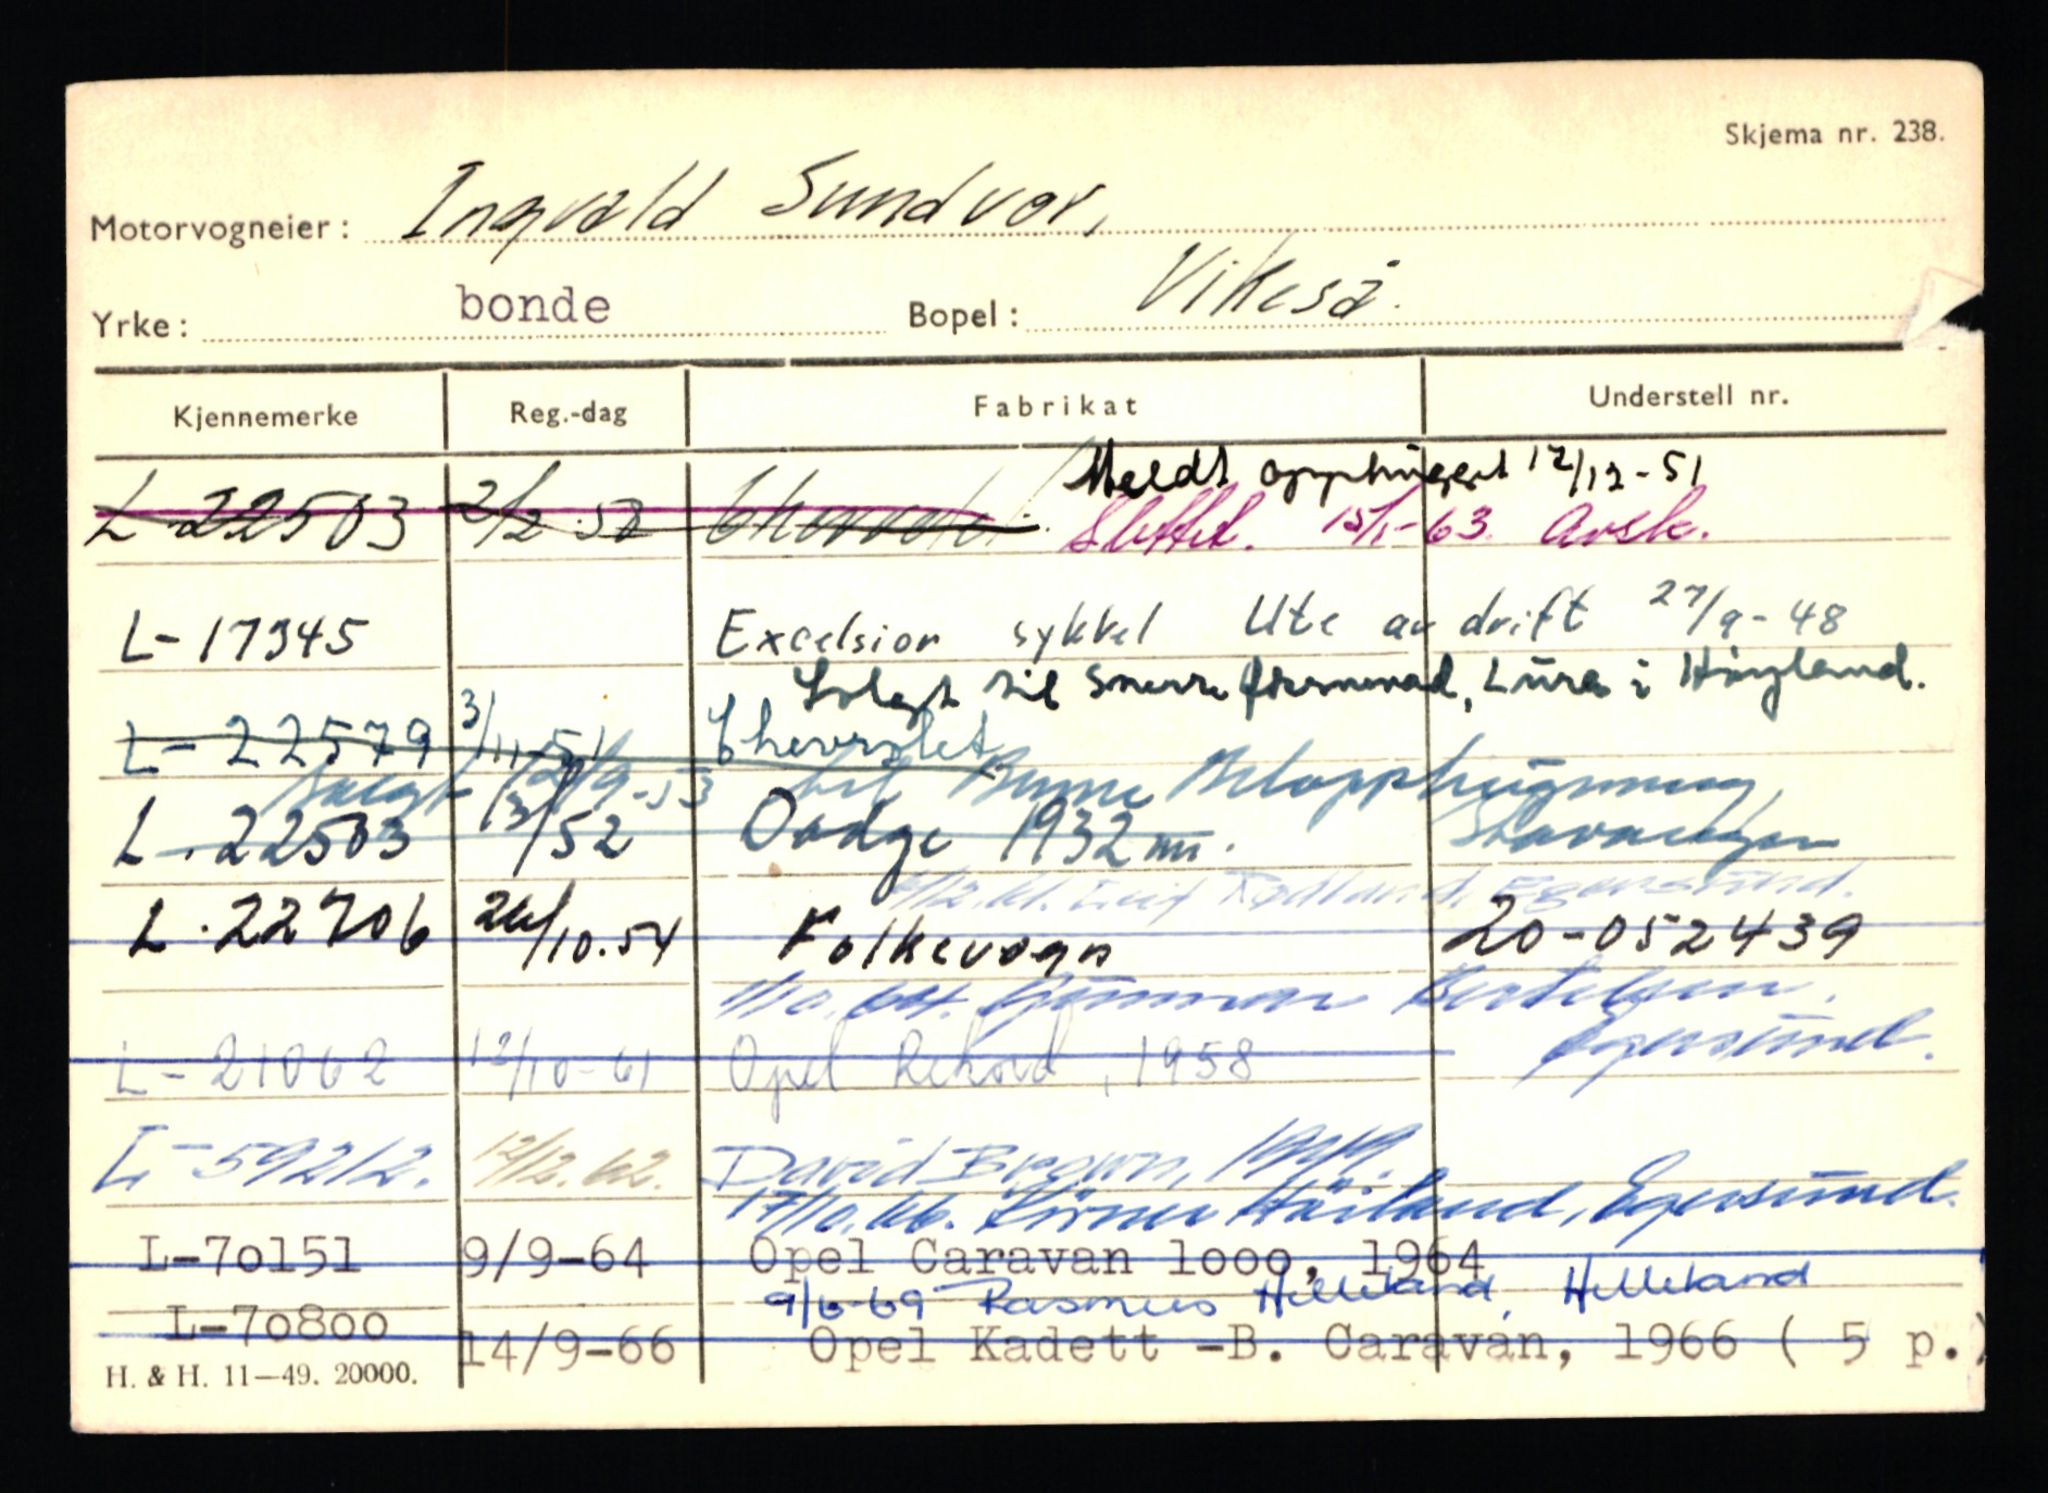 Skjema nr. 238.
Motorvogneier: Ingvald Sundvor,
Yrke: bonde Bopel: Vikeså.
Kjennemerke Reg.-dag Fabrikat Understell nr.
Meldt opphugget 12/12-51
L-22503 2/2.50 Chevrolet. Slettet. 15/1-63. Avsk.
L-17345 Excelsior sykkel Ute av drift 27/9-48
Solgt til Sverre Lura i Høyland.
L-22579 3/11-51 Chevrolet
Solgt 12/9-53 til Bilopphugning,
L.22503 /52 Dodge 1932 m. Stavanger
2/12.61. Leif Rødland, Egersund.
L.22706 26/10.54 Folkevogn 20-052439
1/10.64. Gunnar Bertelsen,
Egersund.
L-21062 12/10-61 Opel Rekord, 1958
L-59212. 12/2.62. David Brown, 1949.
17/10.66. Håiland, Egersund.
L-70151 9/9-64 Opel Caravan 1000, 1964
9/6-69 Rasmus Helleland, Helleland
L-70800 14/9-66 Opel Kadett -B. Caravan, 1966 ( 5 p.)
H. & H. 11—49. 20000.